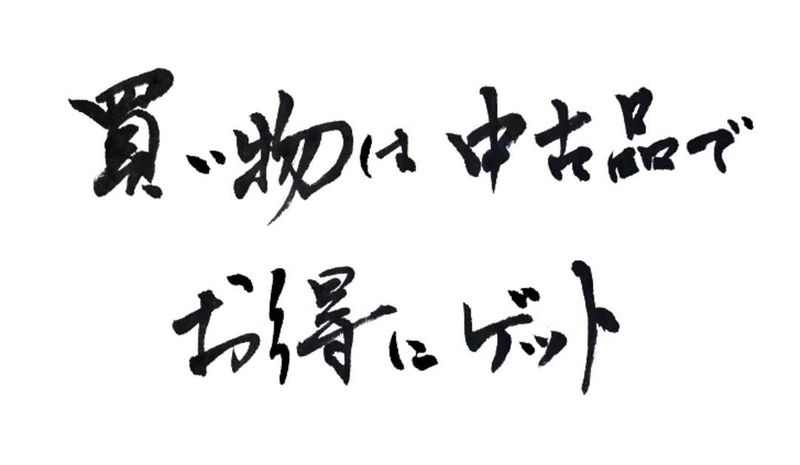 買い物は中古品で
お得にゲット